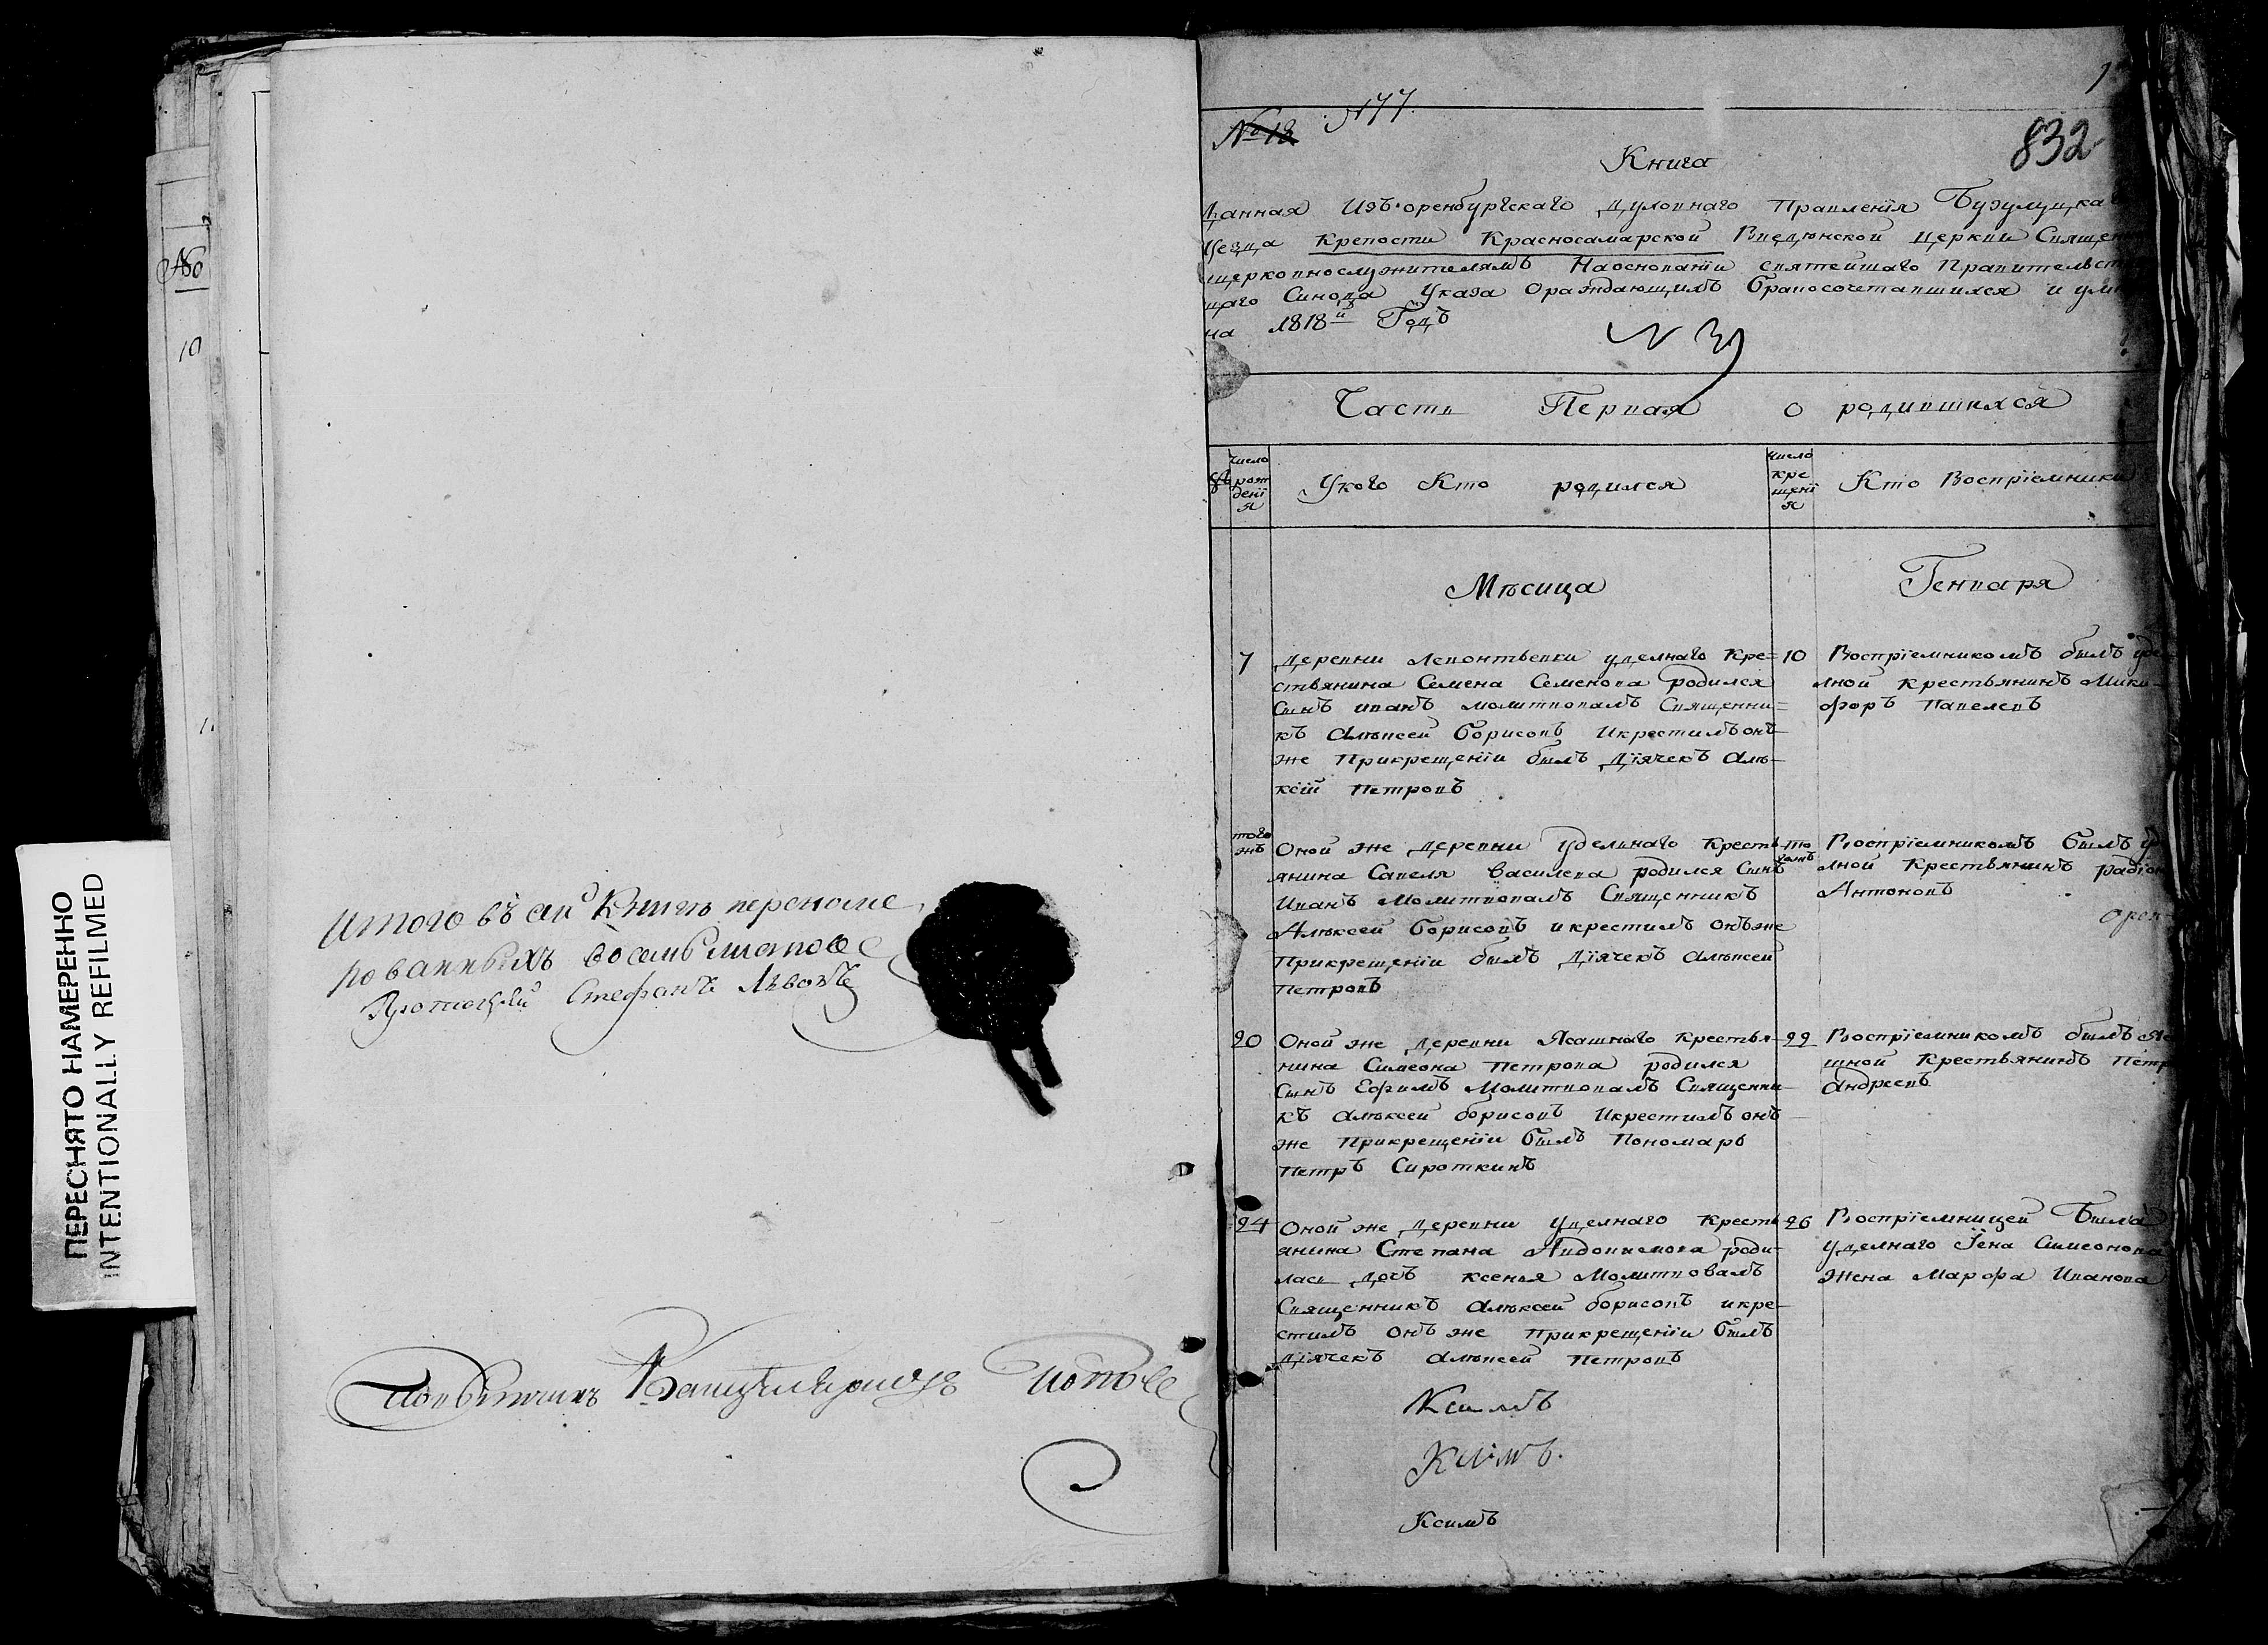 ПЕРЕСНЯТО НАМЕРЕННО
INTENTIONALLY REFILMED
№
10
Итого въ сей Книгѣ перенуме
рованныхъ восемь листовъ
Протоиерей Стефанъ Львовъ
Повытчикъ Канцеляристъ
№ 18
177.
832
Книга
Данная Изъ оренбургскаго Духовнаго Правленія Бузулуцка
уезда Крепости Красносамарской Введенской Церкви Священ
церковнослужителямъ На основаніи святейшаго Правительст
щаго Синода Указа О раждающихъ бракосочетавшихся и ум
на 1818й Годъ
N 3
Часть Первая о родившихся
№
Число рождения
У кого Кто родился
Число крещения
Кто Воспріемники
Мѣсица Генваря
7 деревни Левонтьевки уделнаго Кре=
ствянина Семена Семенова родился
Сынъ иванъ молитвовалъ Священни=
къ Алѣксей Борисовъ И крестилъ онъ
же При крещеніи былъ Діячекъ Алѣ-
ксій Петровъ
10 Воспріемникомъ былъ уде
лной крестьянинъ Мики-
форъ Павеловъ
того жъ Оной же деревни Удельнаго Кресть
янина Савеля Василева родился Сынъ
Иванъ Молитвовалъ Священникъ
Алѣксей Борисовъ и крестилъ онъ же
При крещеніи былъ Діячекъ Алѣксей
Петровъ
Воспріемникомъ былъ у
лной Крестьянинъ радіо
Антоновъ
орен
20 Оной же деревни Ясашнаго Крестья-
нина Симеона Петрова родился
Сынъ Ефимъ Молитвовалъ Священни
къ Алѣксей борисовъ И крестилъ онъ
же При крещеніи былъ Пономарь
Петръ Сироткинъ
22 Воспріемникомъ былъ яса
шной Крестьянинъ Петр
Андреевъ
24 Оной же деревни Уделнаго Кресть
янина Степана роди-
лась дочь ксенья Молитвовалъ
Священникъ Алѣксей борисовъ и кре-
стилъ онъ же При крещеніи былъ
Діячекъ Алѣксей Петровъ
26 Воспріемницей Была
уделнаго Симеонова
жена Марфа Иванова